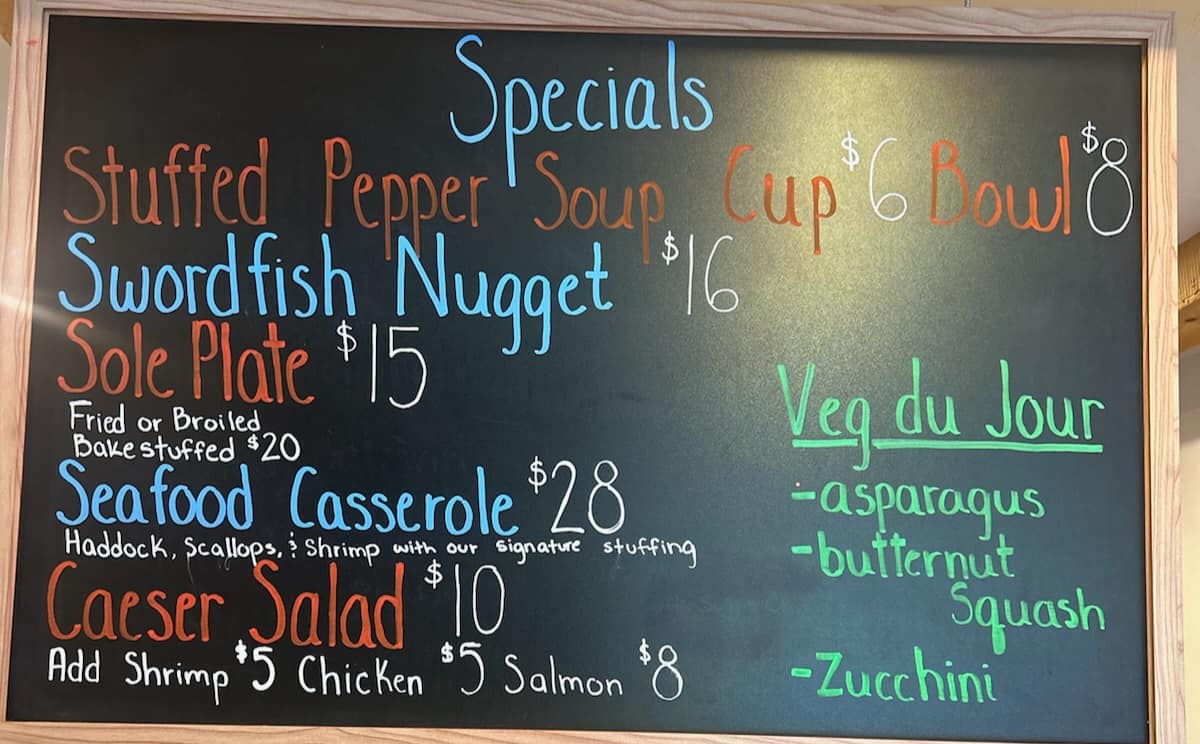 Specials
Stuffed Pepper Soup Cup $6 Bowl $8
Swordfish Nugget $16
Sole Plate $15
Fried or Broiled
Bake stuffed $20
Seafood Casserole $28
Haddock, Scallops, & Shrimp with our signature stuffing
Caeser Salad $10
Add Shrimp $5 Chicken $5 Salmon $8
Veg du Jour
-asparagus
-butternut
Squash
-Zucchini